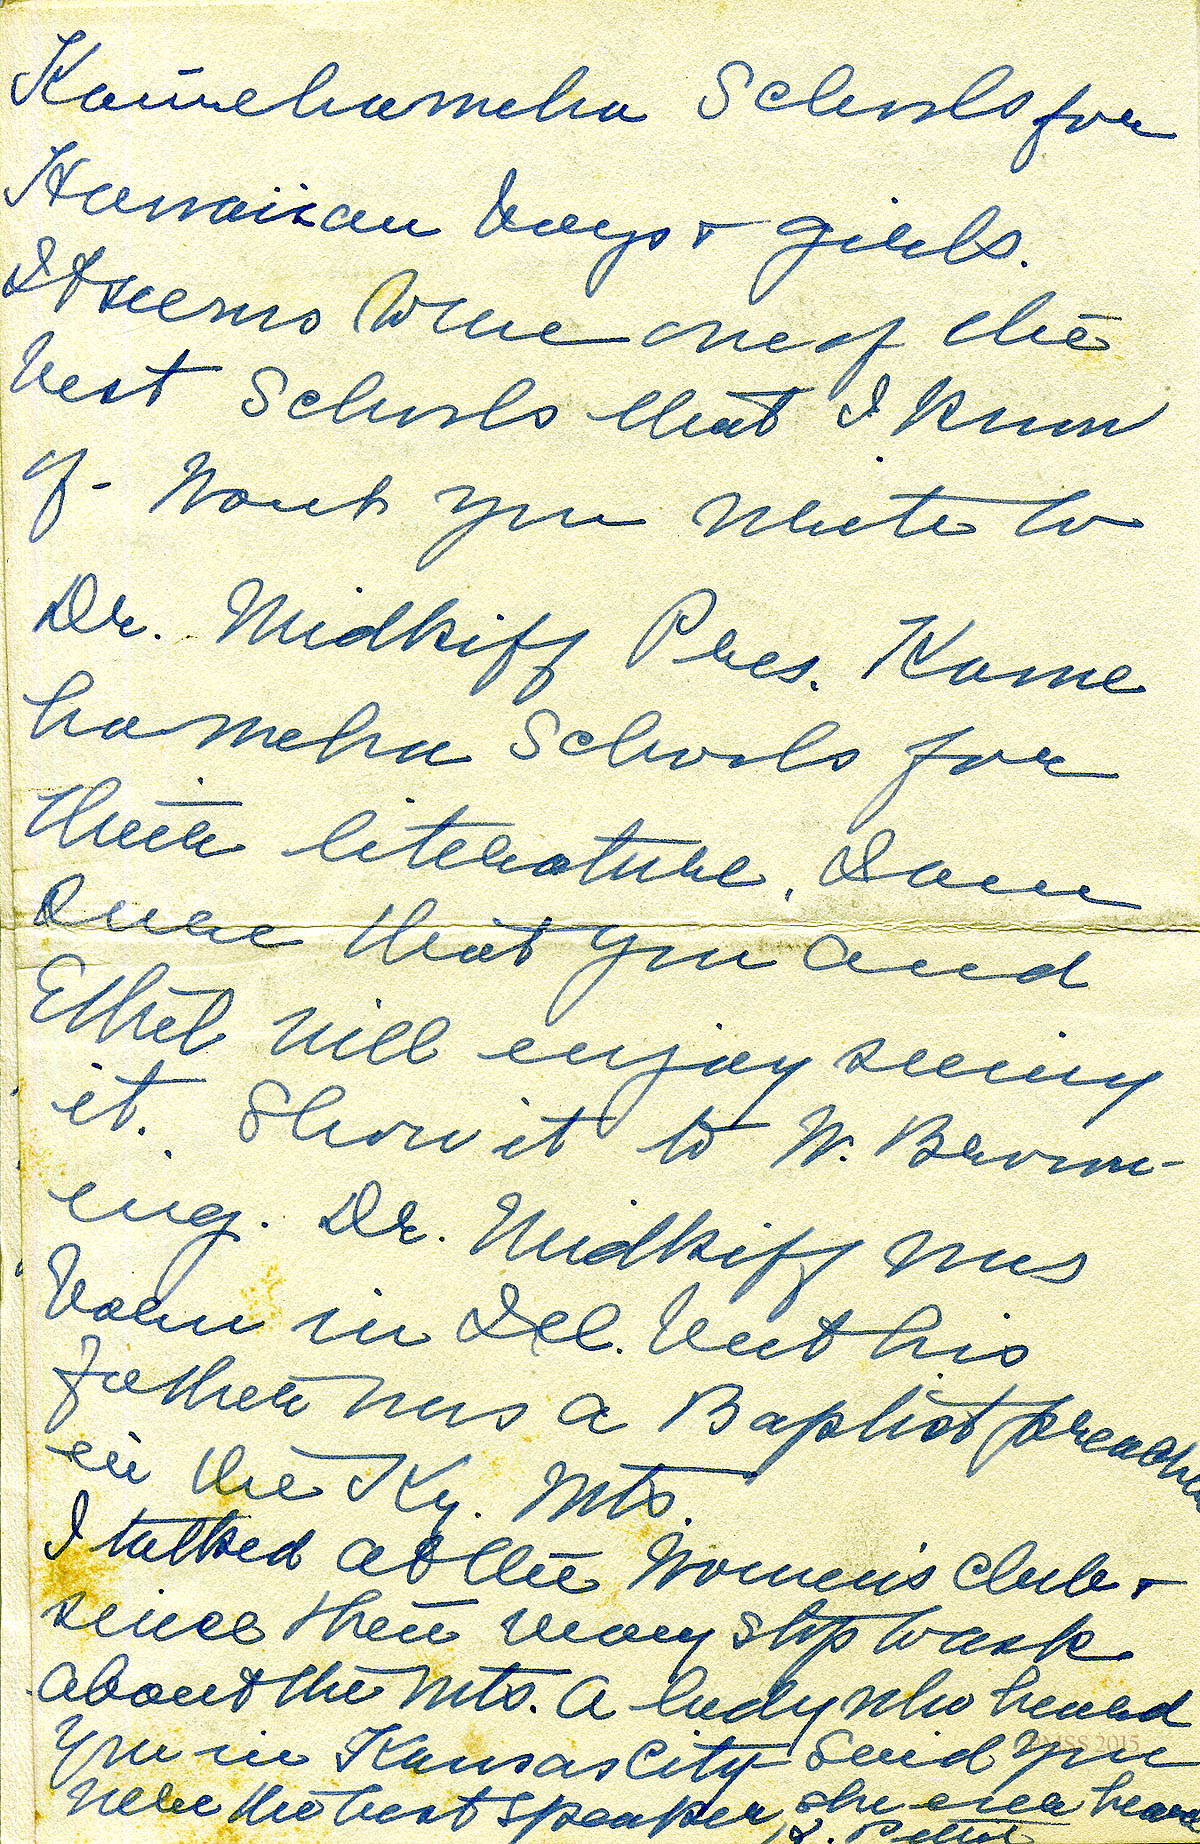 Kamehameha Schools for
Hawaiian boys & girls.
It seems to me one of the
best Schools that I know
of - Wont you write to
Dr. Midkiff Pres. Kame
hameha Schools for
their literature. I am
sure that you and
Ethel will enjoy seeing
it. Show it to W. Brown-
ing. Dr. Midkiff was
born in Ill. but his
father was a Baptist preacher
in the Ky. Mts.
I talked at the Women's Club &
since then many stop to ask
about the Mts. A lady who heard
you in Kansas City said you
were the best speaker she ever heard
PMSS 2015